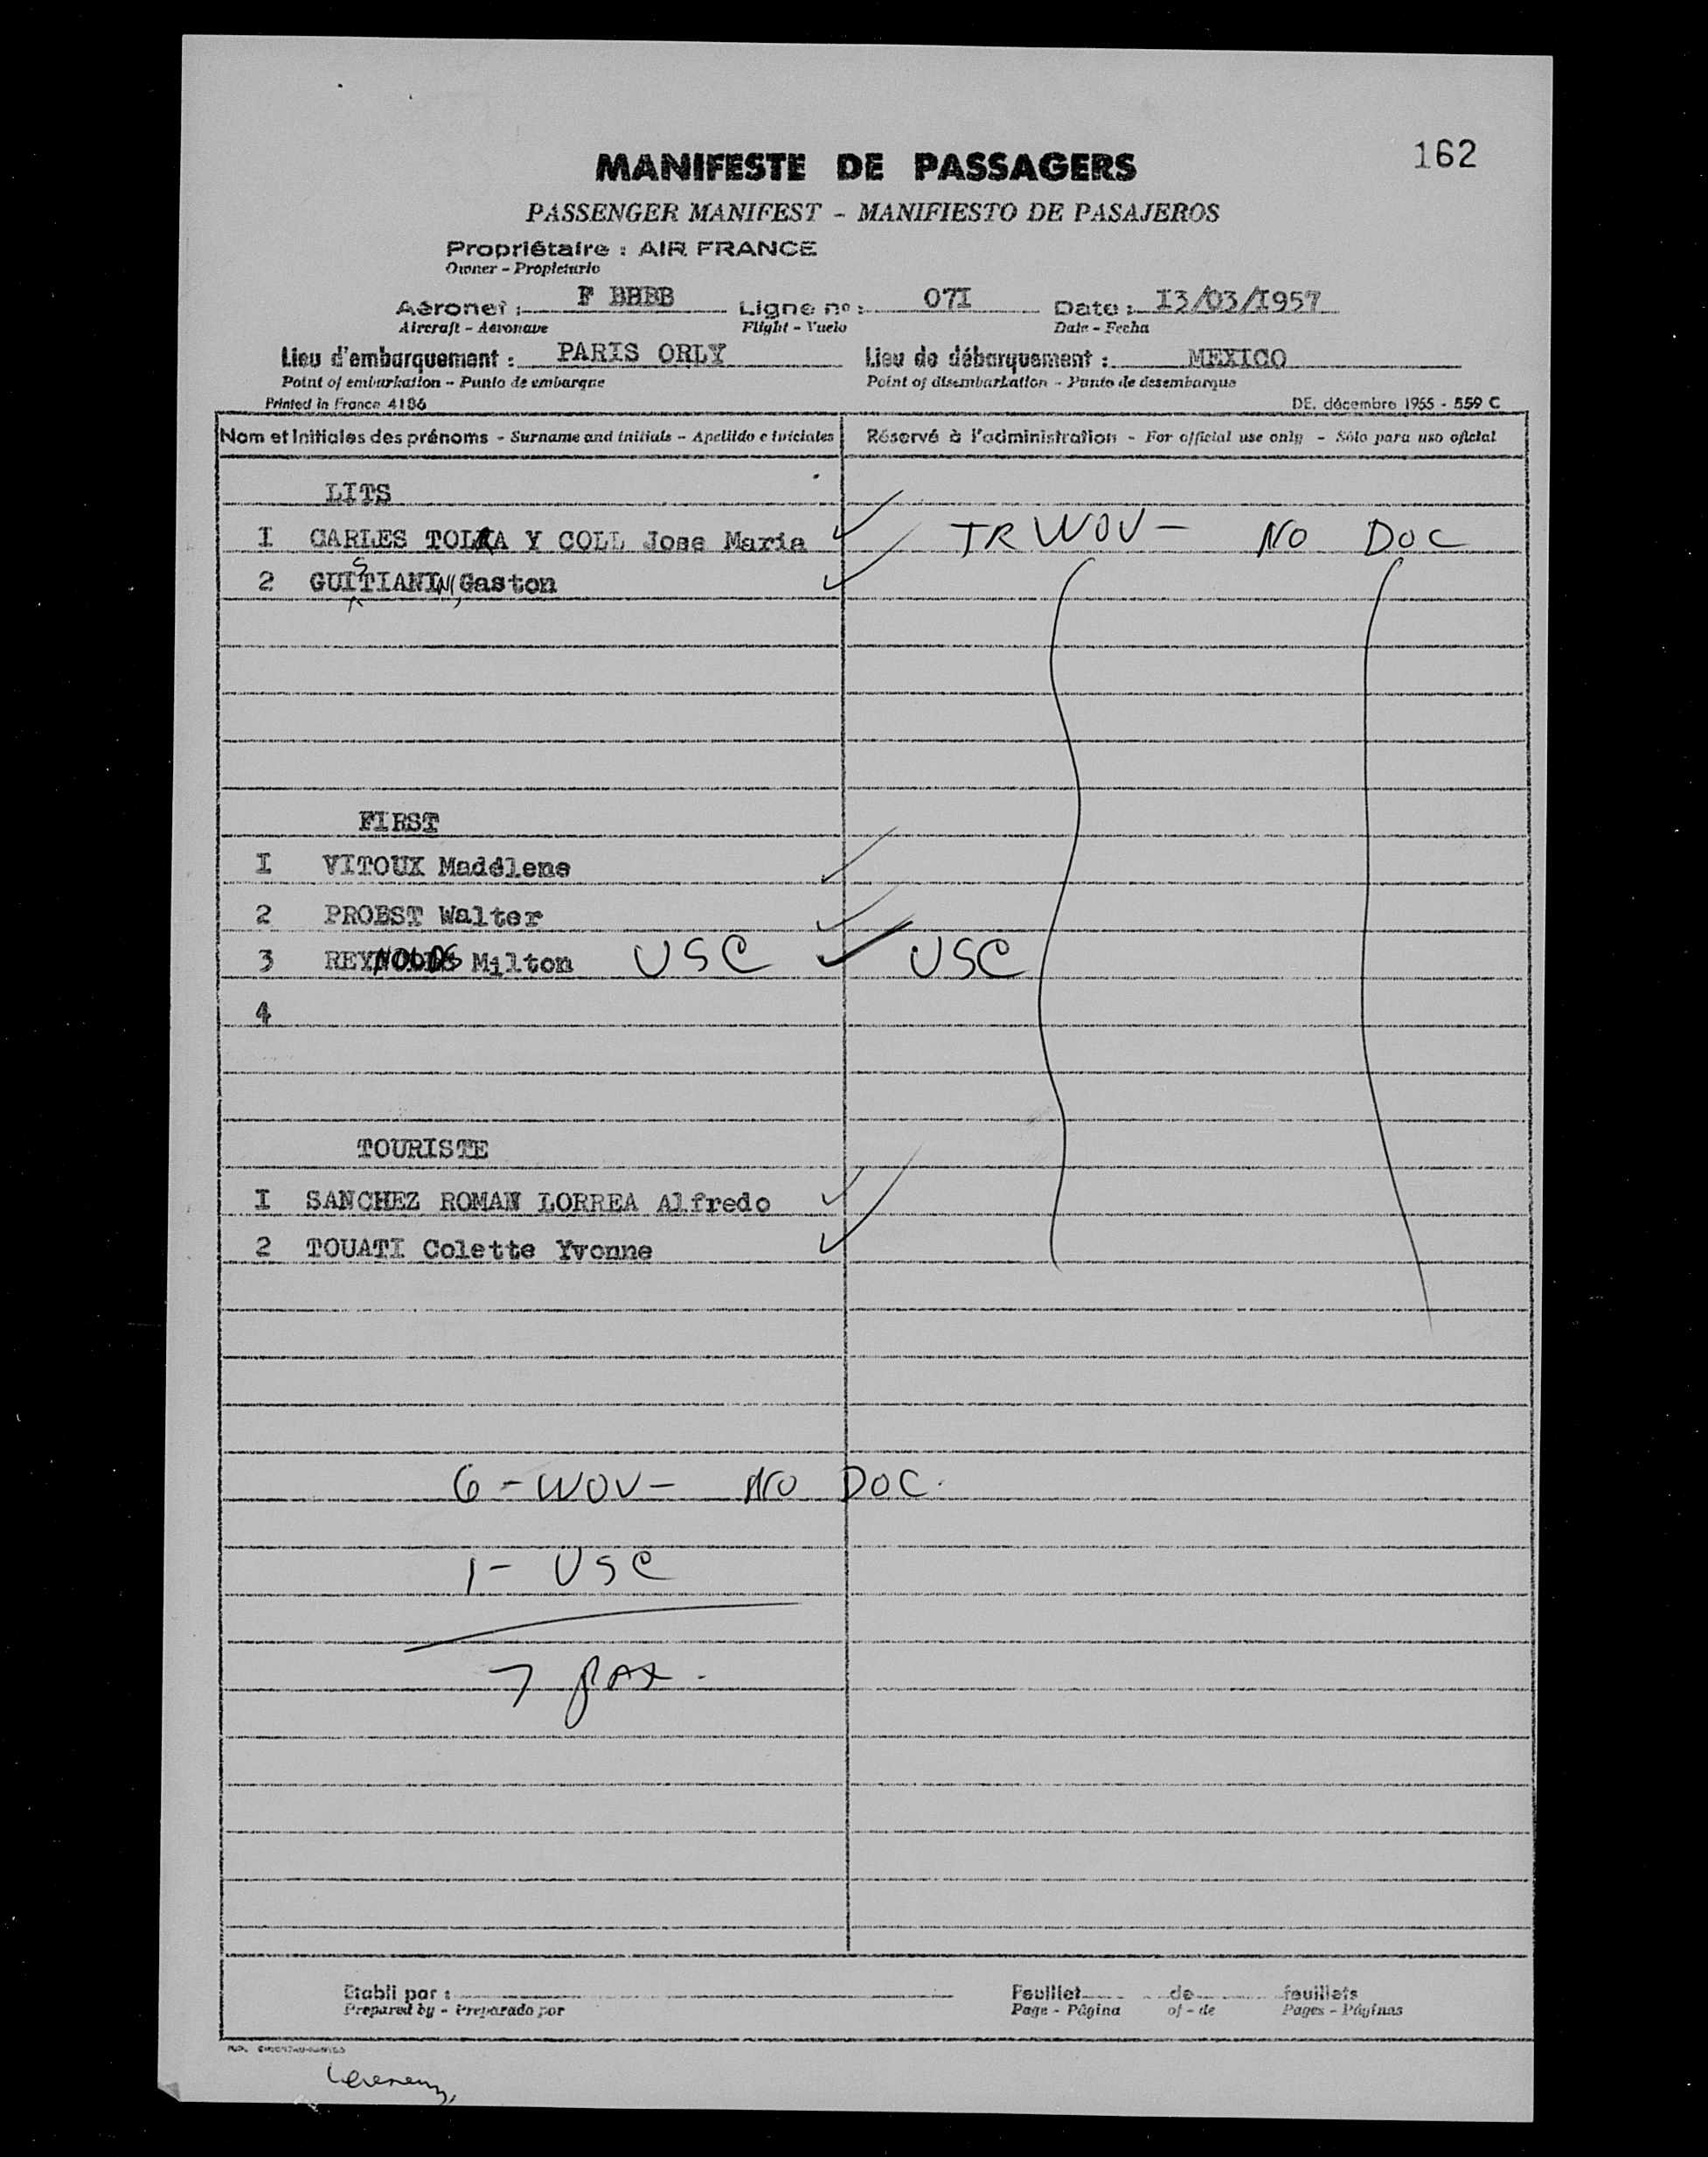 162
MANIFESTE DE PASSAGERS
PASSENGER MANIFEST - MANIFIESTO DE PASAJEROS
Propriétaire : AIR FRANCE
Owner - Propietario
Aéronef : F BHBB Ligne nº : 07I Date : I3/03/I957
Aircraft - Aeronave Flight - Vuelo Date - Fecha
Lieu d'embarquement : PARIS ORLY Lieu de débarquement : MEXICO
Point of embarkation - Punto de embarque Point of disembarkation - Punto de desembarque
Printed in France 4186 DE. décembre 1955 - 559 C
Nom et Initiales des prénoms - Surname and initials - Apellido e iniciales Réservé à l'administration - For official use only - Sólo para uso oficial
LITS
I CARLES TOLRA Y COLL Jose Maria TR WOV - NO DOC
2 GUISTIANINI, Gaston
FIRST
I VITOUX Madélene
2 PROBST Walter
3 REYNOLDS Milton USC USC
4
TOURISTE
I SANCHEZ ROMAN LORREA Alfredo
2 TOUATI Colette Yvonne
6 - WOV - NO DOC.
1 - USC
7 pax.
Etabli par : Feuillet de feuillets
Prepared by - Preparado por Page - Página of - de Pages - Páginas